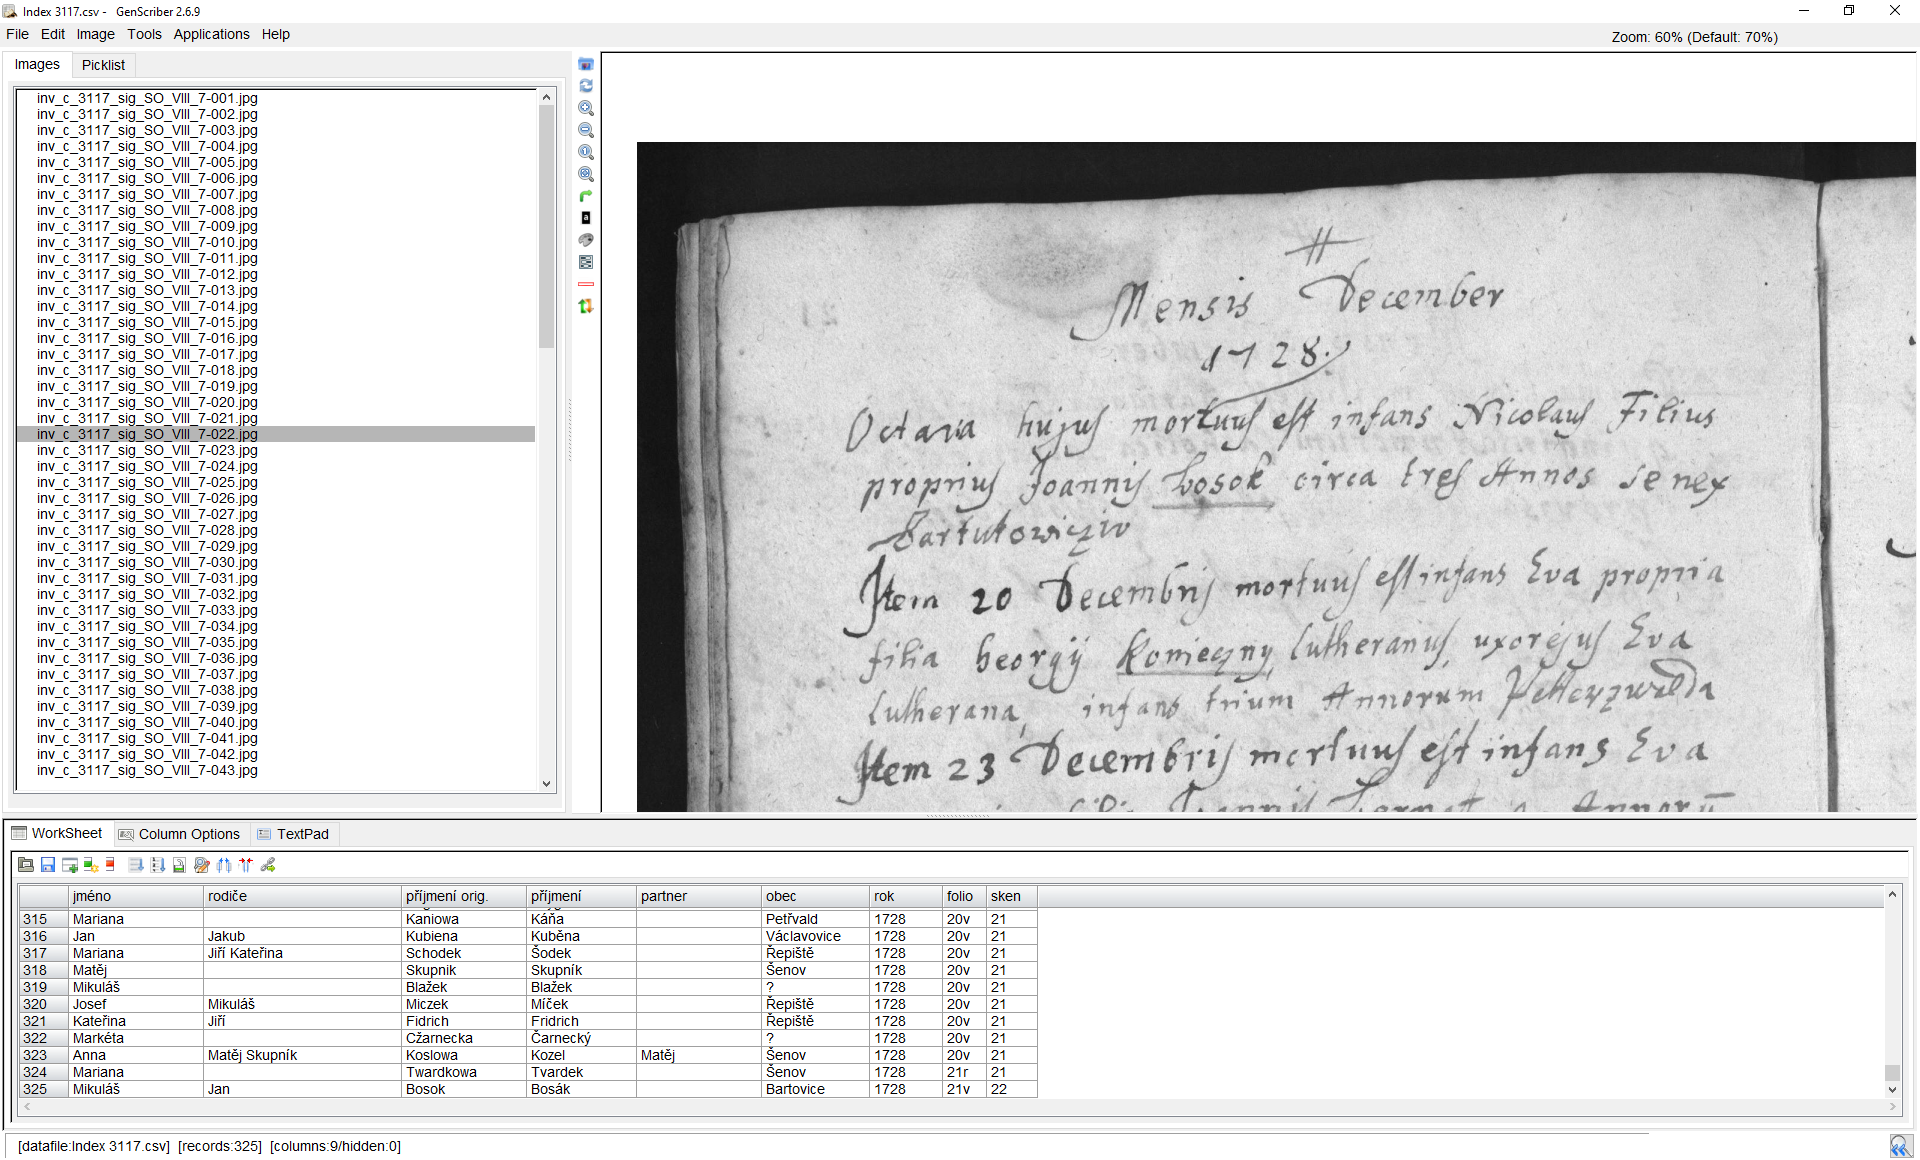 Index 3117.csv - GenScriber 2.6.9
File Edit Image Tools Applications Help
Zoom: 60% (Default: 70%)
Images Picklist
inv_c_3117_sig_SO_VIII_7-001.jpg
inv_c_3117_sig_SO_VIII_7-002.jpg
inv_c_3117_sig_SO_VIII_7-003.jpg
inv_c_3117_sig_SO_VIII_7-004.jpg
inv_c_3117_sig_SO_VIII_7-005.jpg
inv_c_3117_sig_SO_VIII_7-006.jpg
inv_c_3117_sig_SO_VIII_7-007.jpg
inv_c_3117_sig_SO_VIII_7-008.jpg
inv_c_3117_sig_SO_VIII_7-009.jpg
inv_c_3117_sig_SO_VIII_7-010.jpg
inv_c_3117_sig_SO_VIII_7-011.jpg
inv_c_3117_sig_SO_VIII_7-012.jpg
inv_c_3117_sig_SO_VIII_7-013.jpg
inv_c_3117_sig_SO_VIII_7-014.jpg
inv_c_3117_sig_SO_VIII_7-015.jpg
inv_c_3117_sig_SO_VIII_7-016.jpg
inv_c_3117_sig_SO_VIII_7-017.jpg
inv_c_3117_sig_SO_VIII_7-018.jpg
inv_c_3117_sig_SO_VIII_7-019.jpg
inv_c_3117_sig_SO_VIII_7-020.jpg
inv_c_3117_sig_SO_VIII_7-021.jpg
inv_c_3117_sig_SO_VIII_7-022.jpg
inv_c_3117_sig_SO_VIII_7-023.jpg
inv_c_3117_sig_SO_VIII_7-024.jpg
inv_c_3117_sig_SO_VIII_7-025.jpg
inv_c_3117_sig_SO_VIII_7-026.jpg
inv_c_3117_sig_SO_VIII_7-027.jpg
inv_c_3117_sig_SO_VIII_7-028.jpg
inv_c_3117_sig_SO_VIII_7-029.jpg
inv_c_3117_sig_SO_VIII_7-030.jpg
inv_c_3117_sig_SO_VIII_7-031.jpg
inv_c_3117_sig_SO_VIII_7-032.jpg
inv_c_3117_sig_SO_VIII_7-033.jpg
inv_c_3117_sig_SO_VIII_7-034.jpg
inv_c_3117_sig_SO_VIII_7-035.jpg
inv_c_3117_sig_SO_VIII_7-036.jpg
inv_c_3117_sig_SO_VIII_7-037.jpg
inv_c_3117_sig_SO_VIII_7-038.jpg
inv_c_3117_sig_SO_VIII_7-039.jpg
inv_c_3117_sig_SO_VIII_7-040.jpg
inv_c_3117_sig_SO_VIII_7-041.jpg
inv_c_3117_sig_SO_VIII_7-042.jpg
inv_c_3117_sig_SO_VIII_7-043.jpg
Mensis December
1728.
Octava hujus mortuus est infans Nicolaus Filius
proprius Joannis Bosok circa tres Annos senex
Bartukowicziv
Item 20 Decembris mortuus est infans Eva propria
filia Georgij Konieczny, Lutheranus, uxor ejus Eva
Lutherana, infans trium Annorum Petterzwalda
Item 23 Decembris mortuus est infans Eva
WorkSheet Column Options TextPad
jméno rodiče příjmení orig. příjmení partner obec rok folio sken
315 Mariana Kaniowa Káňa Petřvald 1728 20v 21
316 Jan Jakub Kubiena Kuběna Václavovice 1728 20v 21
317 Mariana Jiří Kateřina Schodek Šodek Řepiště 1728 20v 21
318 Matěj Skupnik Skupník Šenov 1728 20v 21
319 Mikuláš Blažek Blažek ? 1728 20v 21
320 Josef Mikuláš Miczek Míček Řepiště 1728 20v 21
321 Kateřina Jiří Fidrich Fridrich Řepiště 1728 20v 21
322 Markéta Cžarnecka Čarnecký ? 1728 20v 21
323 Anna Matěj Skupník Koslowa Kozel Matěj Šenov 1728 20v 21
324 Mariana Twardkowa Tvardek Šenov 1728 21r 21
325 Mikuláš Jan Bosok Bosák Bartovice 1728 21v 22
[datafile:Index 3117.csv] [records:325] [columns:9/hidden:0]